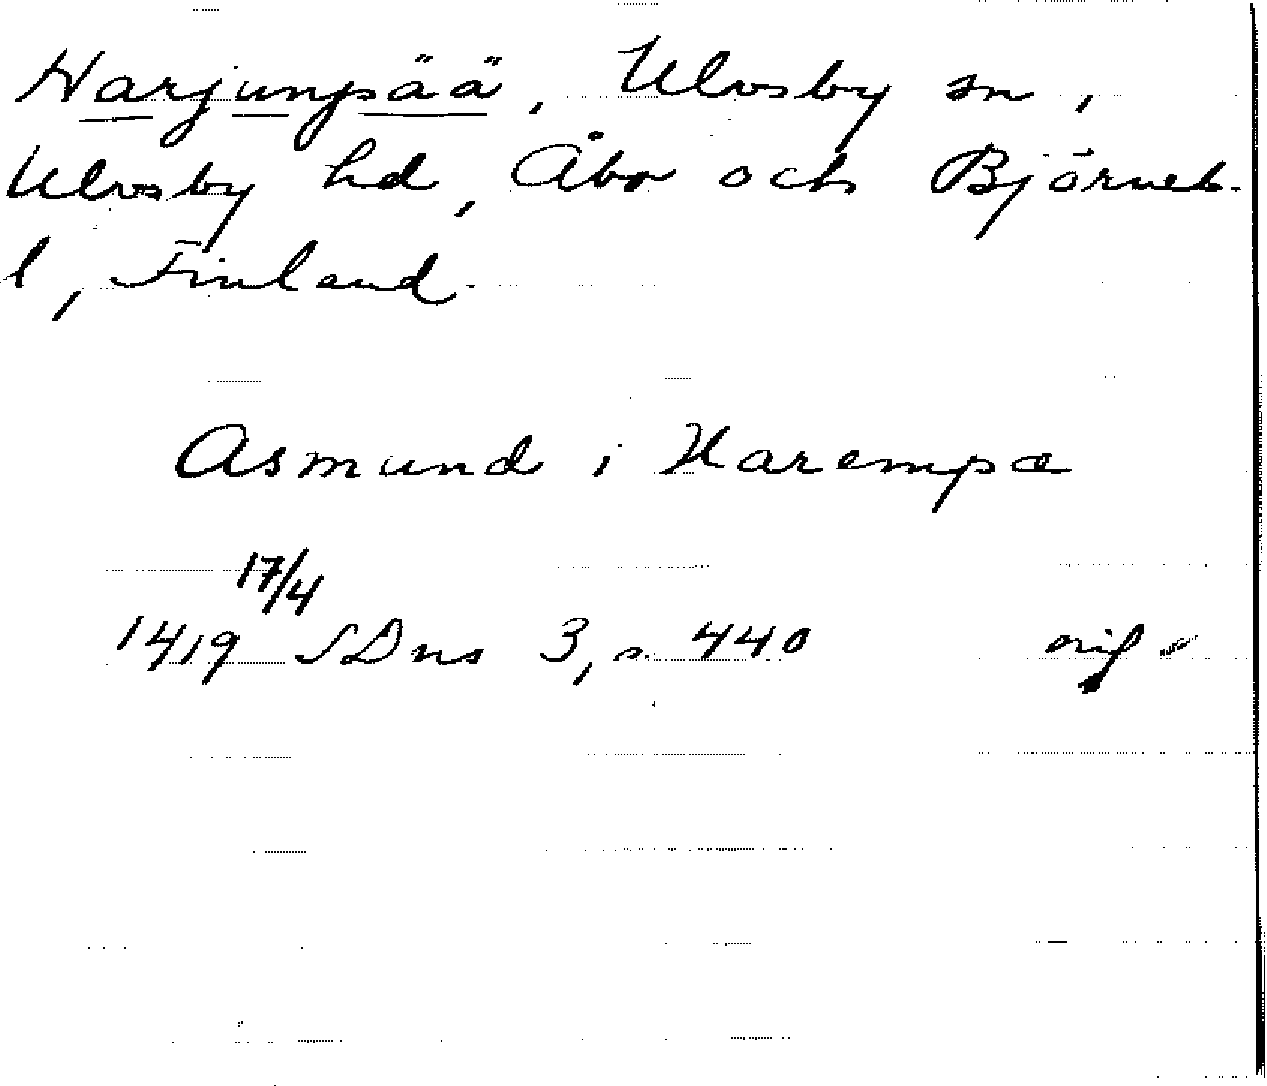 Harjunpää, Ulvsby sn,
Ulvsby hd, Åbo och Björneb.
l, Finland.
Asmund i Harempæ
17/4
1419 SDns 3, s. 440 orig